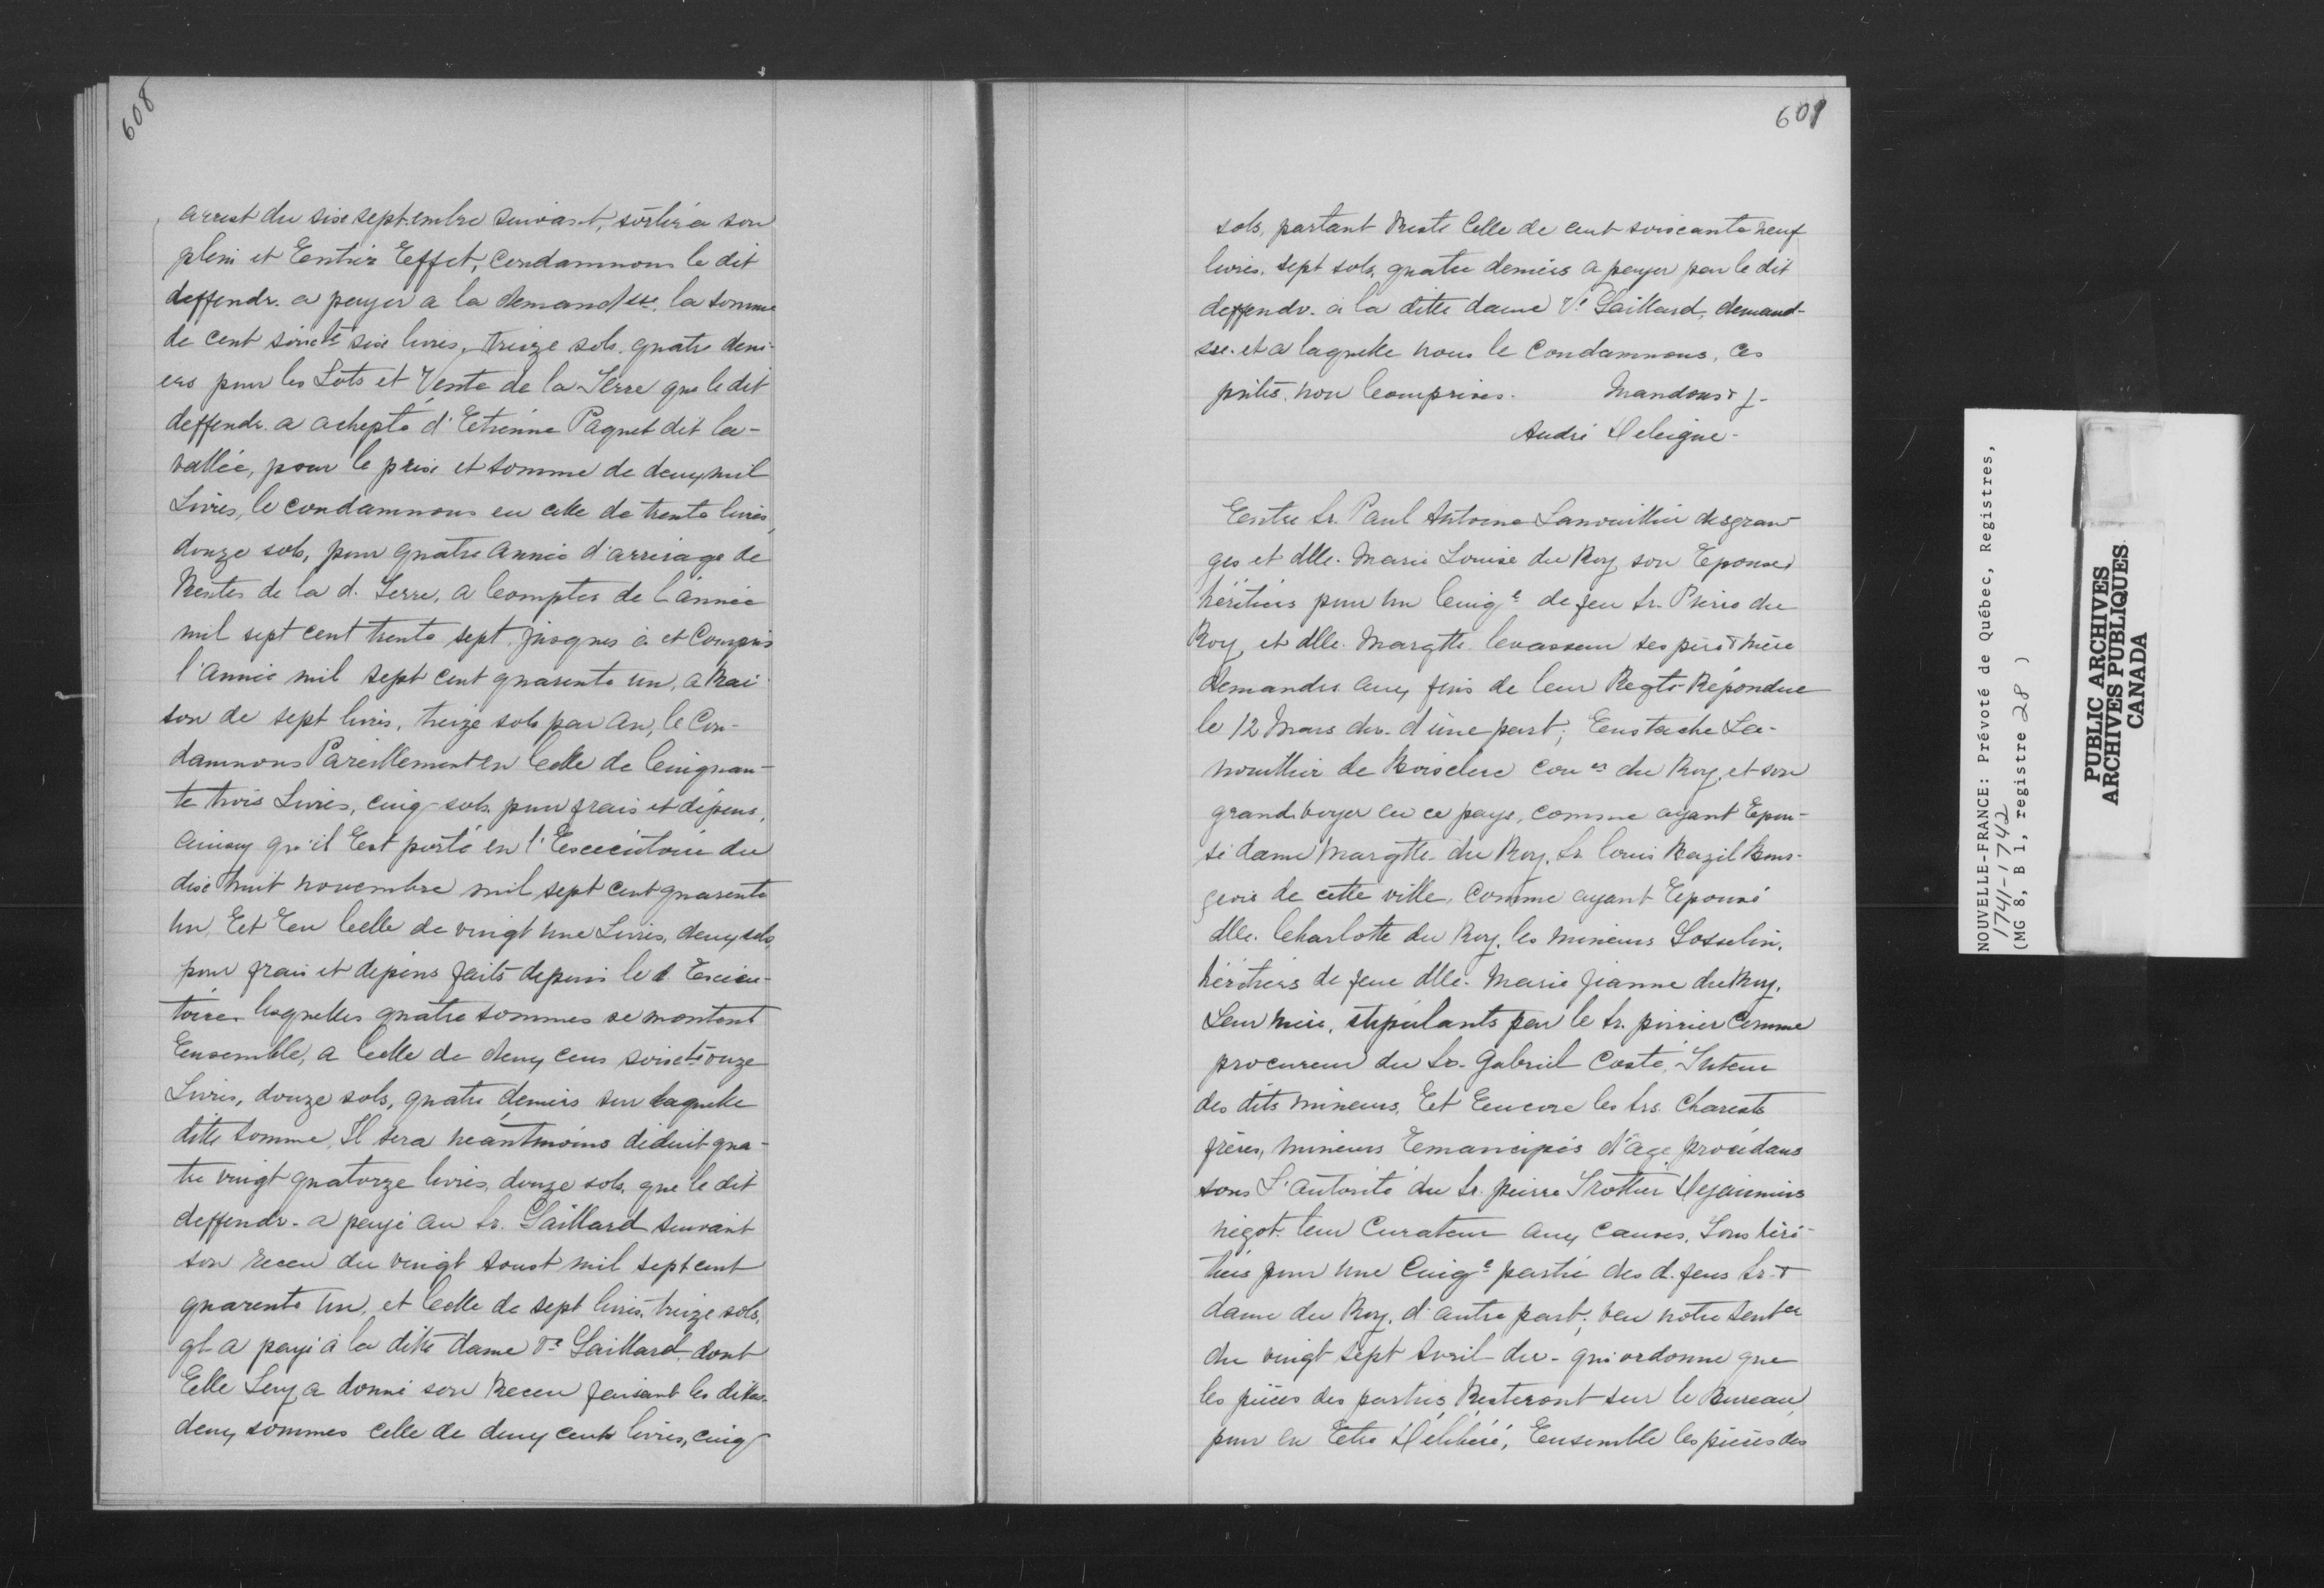 608
arrest du sixe septembre suivant, sortira son
plein et Entier Effet, Condamnons le dit
deffendr. a payer a la demandsse. la somme
de cent soixte sixe livres, treize sols quatre deni-
ers pour les Lots et Vente de la Terre que le dit
deffendr. a achepté d'Etienne Paquet dit la-
vallée, pour le prix et somme de deux mil
Livres, le condamnons en celle de trente livres,
douze sols, pour quatre année d'arrérage de
Rentes de la d. Terre, a Compter de l'année
mil sept cent trente sept jusques à et Compris
l'année mil sept cent quarente un, a Rai-
son de sept livres, treize sols par an, le Con-
damnons Pareillement en Celle de Cinquan-
te trois Livres, cinq sols pour frais et dépens,
ainsy qu'il Est porté en l'Exécutoire du
dixe huit novembre mil sept cent quarente
un, Et En Celle de vingt une Livres, deux sols
pour frais et depens faits depuis le d. Exécu-
toire lesquelles quatre sommes se montent
Ensemble, a Celle de deux cens soixte onze
Livres, douze sols, quatre deniers sur laquelle
ditte somme, Il sera néantmoins déduit qua-
tre vingt quatorze livres, douze sols, que le dit
deffendr. a payé au Sr. Gaillard suivant
son receu du vingt aoust mil sept cent
quarente un, et Celle de sept livres, treize sols,
qt a payé à la ditte dame Ve Gaillard, dont
Elle Luy a donné son Receu faisant les dittes
deux sommes celle de deux cents livres, cinq
601
sols, partant Reste Celle de cent soixcante neuf
livres, sept sols, quatre deniers a payer par le dit
deffendr. à la ditte dame Ve Gaillard, demand-
sse. et a laquelle nous le Condamnons, Ces
pntes. non Comprises. Mandons &
André Deleigne.
Entre Sr. Paul Antoine Lanouillier desgran-
ges et dlle. Marie Louise du Roy son Epouse,
héritiers pour un Cinqe de feu Sr. Pierre du
Roy, et dlle. Margtte levasseur ses père & mère
demandrs aux fins de leur Reqte Répondue
le 12 Mars der. d'une part; Eustache La-
nouillier de Boisclerc coner du Roy, et son
grand voyer en ce pays, comme ayant Epou-
sé dame Margtte du Roy, Sr. louis Bazil Bour-
geois de cette ville, comme ayant Epousé
dlle. Charlotte du Roy, les mineurs Gosselin,
héritiers de feue dlle. Marie Jeanne du Roy,
Leur mère, stipulants par le Sr. poirier Comme
procureur du Sr. Gabriel Coste, Tuteur
des dits mineurs, Et Encore les Srs. Chareste
frères, mineurs Emancipés d'âge procédans
sous L'autorité du Sr. pierre Trottier Dejauniers
négot. leur Curateur aux Causes, Tous héri-
tiers pour une Cinqe partie des d. feus Sr. &
dame du Roy, d'autre part; veu notre sentce
du vingt sept Avril der. qui ordonne que
les pièces des parties Resteront sur le Bureau
pour en Etre Délibéré, Ensemble les pièces des
NOUVELLE-FRANCE: Prévoté de Québec, Registres,
1741-1742
(MG 8, B 1, registre 28 )
PUBLIC ARCHIVES
ARCHIVES PUBLIQUES
CANADA